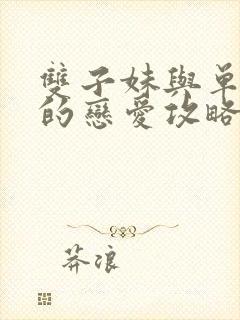 雙子妹與單
的戀愛攻略
莽浪